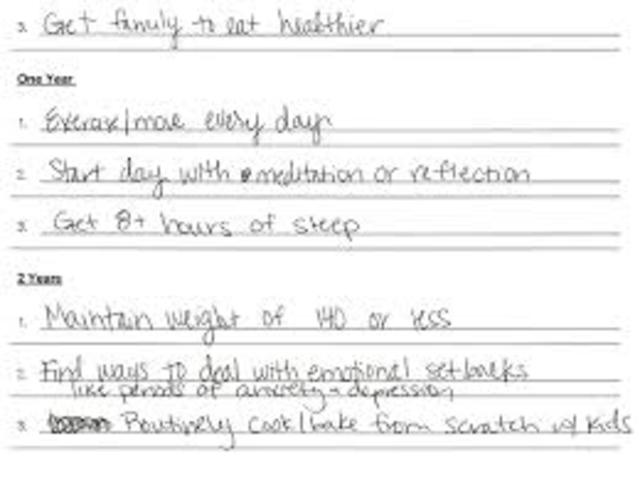 3. Get family to eat healthier
One Year
1. Exercise/move every day
2. Start day with meditation or reflection
3. Get 8+ hours of sleep
2 Years
1. Maintain weight of 140 or less
2. Find ways to deal with emotional setbacks
like periods of anxiety + depression
3. Routinely cook/bake from scratch w/ kids